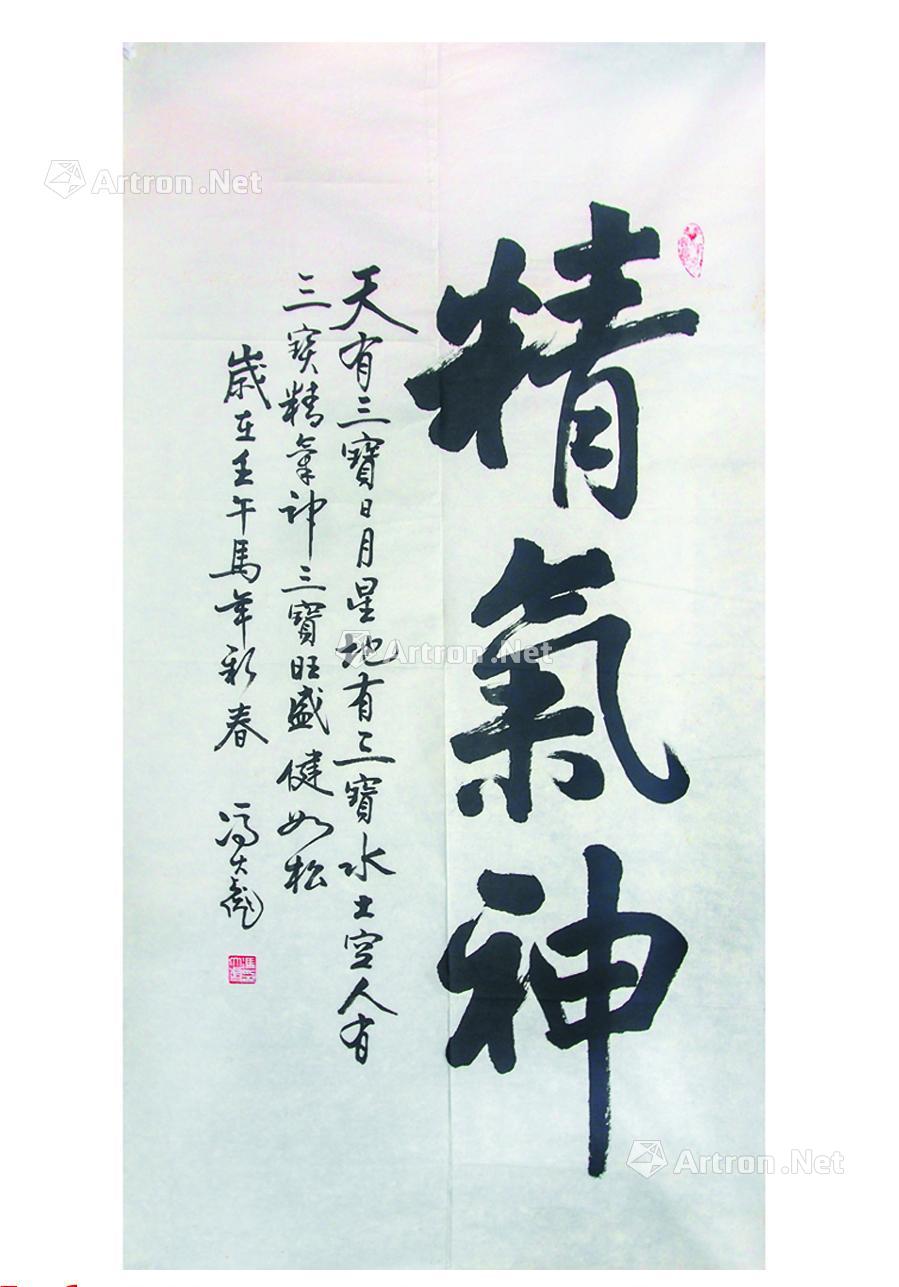 精氣神
天有三寶日月星地有三寶水土空人有
三寶精氣神三寶旺盛健如松
歲在壬午馬年新春
馮大彪
Artron.Net
Artron.Net
Artron.Net